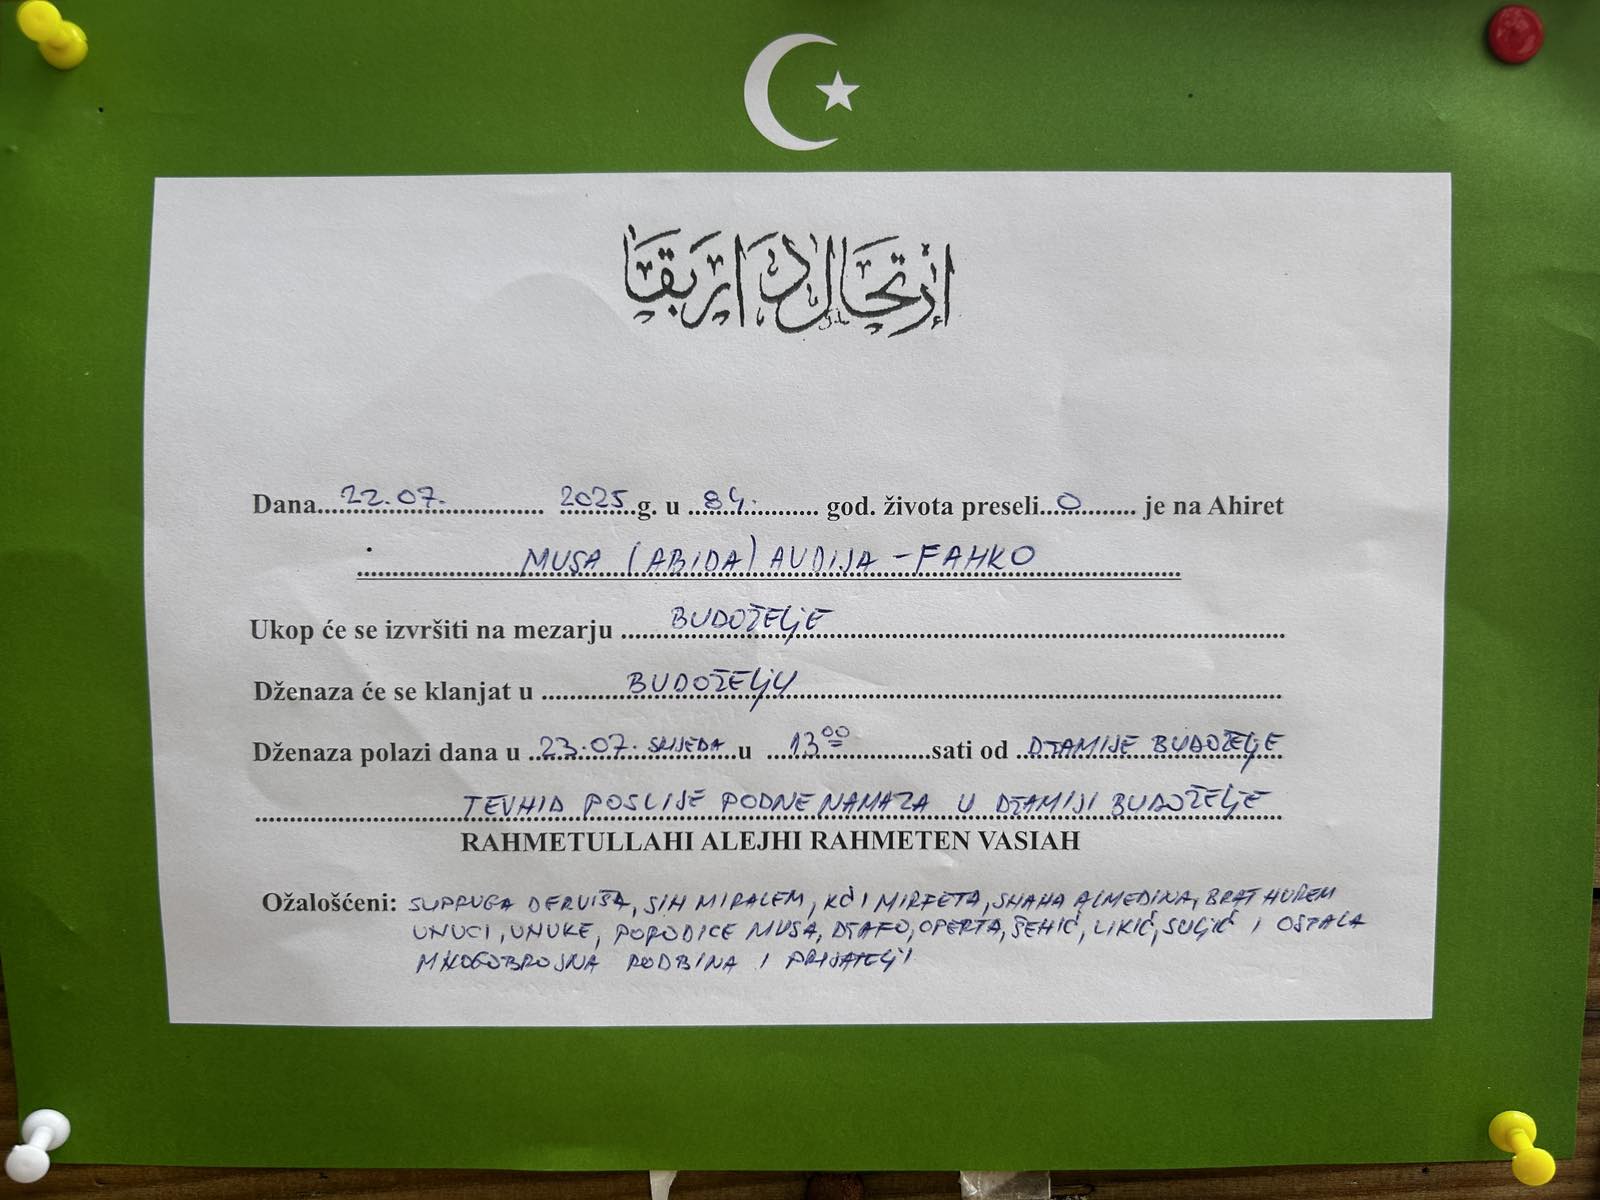 إرتحال دار بقا
Dana 22.07. 2025 g. u 84. god. života preseli O je na Ahiret
MUSA (ABIDA) AVDIJA - FAHKO
Ukop će se izvršiti na mezarju BUDOŽELJE
Dženaza će se klanjat u BUDOŽELJU
Dženaza polazi dana u 23.07. SRIJEDA u 13 00 sati od DŽAMIJE BUDOŽELJE
TEVHID POSLIJE PODNE NAMAZA U DŽAMIJI BUDOŽELJE
RAHMETULLAHI ALEJHI RAHMETEN VASIAH
Ožalošćeni: SUPRUGA DERVIŠA, SIN MIRALEM, KĆI MIRFETA, SNAHA ALMEDINA, BRAT HUREM
UNUCI, UNUKE, PORODICE MUSA, DŽAFO, OPERTA, ŠEHIĆ, LIKIĆ, SULJIĆ I OSTALA
MNOGOBROJNA RODBINA I PRIJATELJI